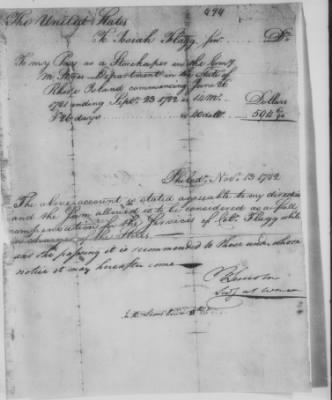 494
The United States
To Josiah Flagg Junr. Dr.
To my Pay as a Storekeeper in the Comy
M. Stores Department in the State of
Rhode Island commencing June 26
1781 ending Septr. 23 1782 is 14 Ms.
Dollars
days @ 40 doll. 594
Philada. Novr. 13 1782
The above account is stated agreeable to my direction
and the sum allowed is to be considered as a full
compensation for the services of Colo. Flagg while
in charge of the Stores
and the passing it is recommended to those under whose
notice it may hereafter come
B Lincoln
Secy at War